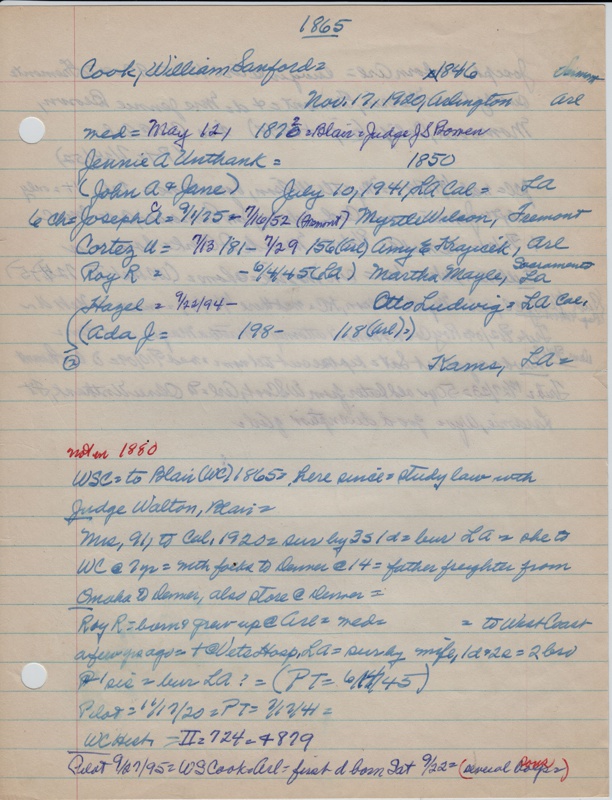 1865
Cook, William Sanford = x1846
Nov. 17, 1920, Arlington Arl
med = May 12, 1873 = Blair = Judge J S Bowen
Jennie A Unthank = 1850
(John A + Jane) July 10, 1941, LA Cal = LA
6 ch = Joseph A = 9/1/75 = 7/16/52 (Fremont) Myrtle Wilson, Fremont
Cortez U = 7/13/81 - 7/29/56 (Arl) Amy E Krajicek, Arl
Roy R = - 6/4/45 (LA) Martha Mayle, Sacramento LA
Hazel = 9/22/94 - Otto Ludwig = LA Cal,
(Ada J = 198- 118 (Arl) =)
(2) Kams, LA =
not in 1880
WSC = to Blair (WC) 1865 = here since = study law with
Judge Walton, Blair =
Mrs, 91, to Cal, 1920 = sur by 3s 1d = bur LA = she to
WC @ 7 yr = with folks to Denver @ 14 = father freighter from
Omaha to Denver, also store @ Denver =
Roy R = born & grew up @ Arl = med = = to West Coast
a few yrs ago = + @ Vets Hosp, LA = sur by wife, 1d + 2s = 2 bro
1 sis = bur LA ? = (PT = 6/14/45)
Pilot = 11/17/20 = PT = 7/17/41 =
WC Hist = II = 724 = + 879
Pilot 9/27/95 = WS Cook = Arl = first d born Sat 9/22 = (several boys =)